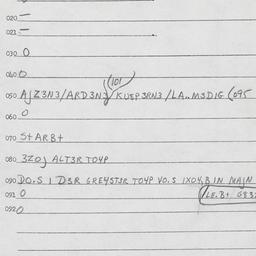 020 —
021 —
030 O
040 O
101
050 AJZ3N3/ARD3N3/KUEP3RN3/LA..M3DIG (095
060 O
070 StARBt
080 3ZOJ ALT3R TOYP
090 DO.S I D3R GREYST3R TOYP VO.S IXOY.B IN MAJN
091 O /LE.Bt. G83
092 O